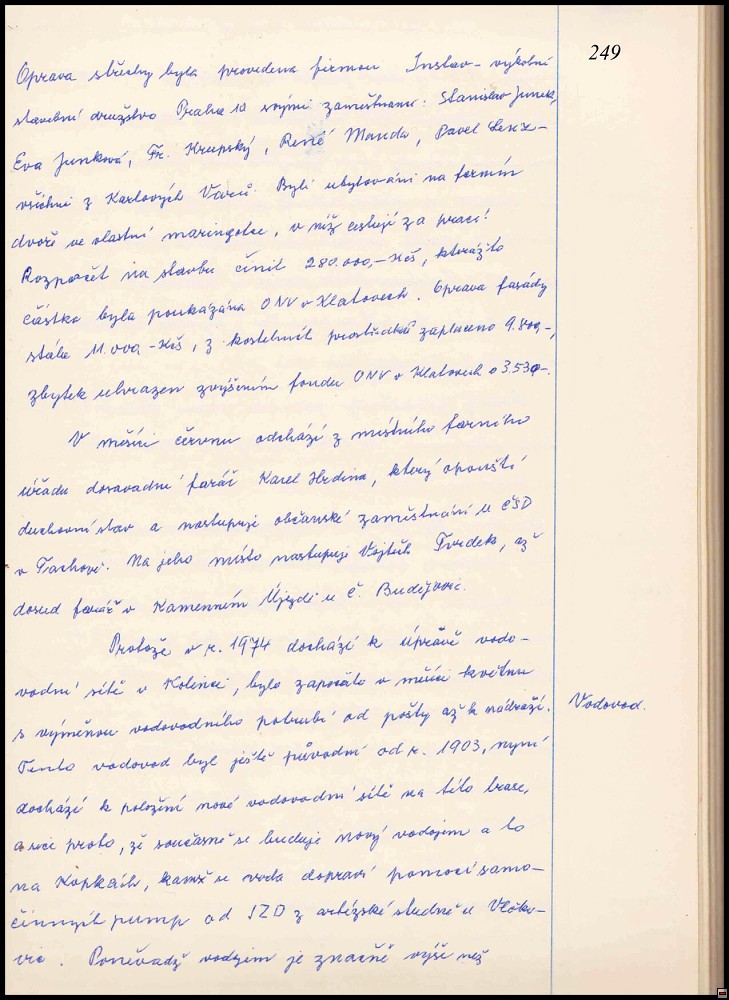 249
Oprava střechy byla provedena firmou Instav - výrobní
stavební družstvo Praha 10 svými zaměstnanci: Stanislav Junek,
Eva Junková, Fr. Krupský, René Manda, Pavel
všichni z Karlových Varů. Byli ubytováni na farním
dvoře ve vlastní maringotce, v níž cestují za prací!
Rozpočet na stavbu činil 280.000,- Kčs, kterážto
částka byla poukázána ONV v Klatovech. Oprava fasády
stála 11.000 - Kčs, z kostelních prostředků zaplaceno
zbytek uhrazen zvýšením fondu ONV v Klatovech o
V měsíci červnu odchází z místního farního
úřadu dosavadní farář Karel Hrdina, který opouští
duchovní stav a nastupuje občanské zaměstnání u ČSD
v Tachově. Na jeho místo nastupuje Vojtěch Tvrdek, až
dosud farář v Kamenném Újezdě u Č. Budějovic.
Protože v r. 1974 dochází k úpravě vodo-
vodní sítě v Kolinci, bylo započato v měsíci květnu
s výměnou vodovodního potrubí od pošty až k nádraží.
Vodovod.
Tento vodovod byl ještě původní od r. 1903, nyní
dochází k položení nové vodovodní sítě na této trase,
a sice proto, že současně se buduje nový vodojem a to
na Kopkách, kamž se voda dopraví pomocí samo-
činných pump od JZD z artézské studně u Vlčko-
vic. Poněvadž vodojem je značně výše než